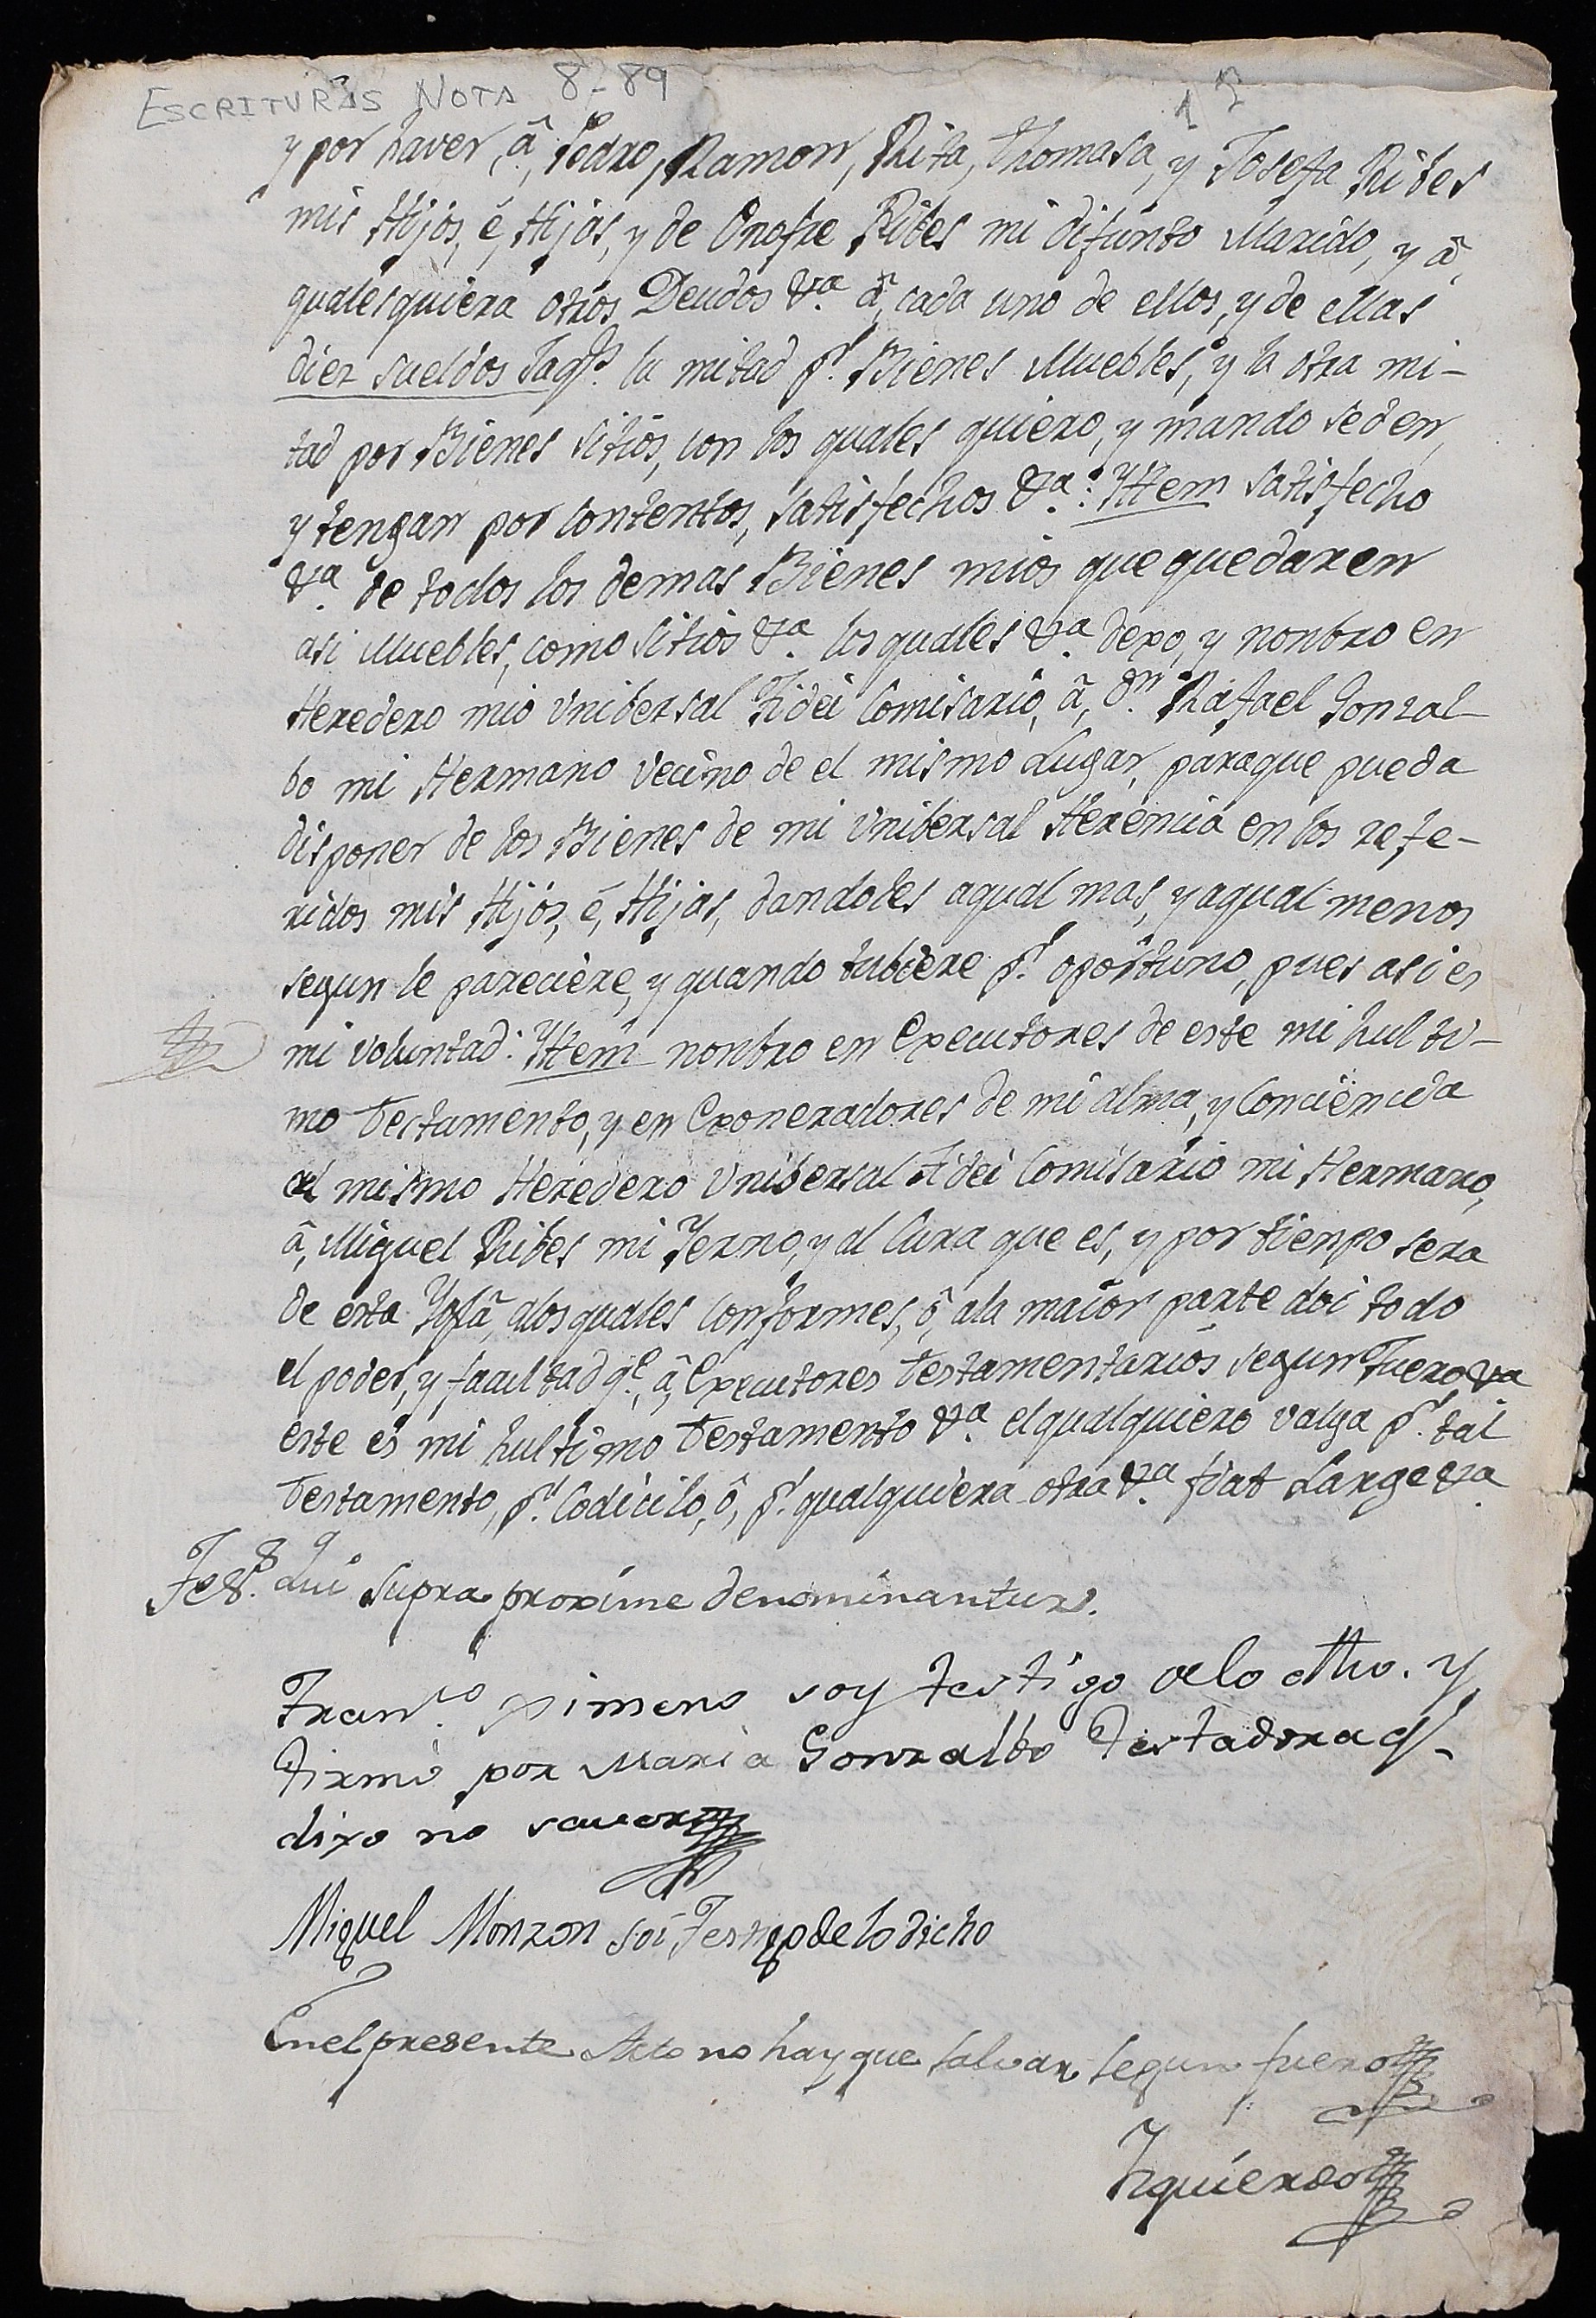 ESCRITURAS NOTA 8-89
y por haver, â, Pedro, Ramon, Rita, Thomasa, y Josefa Ribes
mis Hijos, é, Hijas, y de Onofre Ribes mi difunto Marido, y â,
qualesquiera otros Deudos &ª. â, cada uno de ellos, y de ellas
diez sueldos Jaqs. la mitad pr. Bienes Muebles, y la otra mi-
tad por Bienes sitios, con los quales quiero, y mando se den,
y tengan por contentos, satisfechos &ª: Ittem satisfecho
&ª. de todos los demas Bienes mios que quedaren
asi Muebles, como sitios &ª. los quales &ª. dexo, y nonbro en
Heredero mio Unibersal Fidei Comisario, â, Dn. Rafael Gonzal-
bo mi Hermano vecino de el mismo Lugar, paraque pueda
disponer de los Bienes de mi Unibersal Herencia en los refe-
ridos mis Hijos, é, Hijas, dandoles aqual mas, y aqual menos
segun le pareciere, y quando tubiere pr. oportuno, pues asi es
mi voluntad: Ittem nonbro en Executores de este mi hulti-
mo Testamento, y en Exoneradores de mi alma, y Conciencia
al mismo Heredero Unibersal Fidei Comisario mi Hermano,
â, Miguel Ribes mi Yerno, y al Cura que es, y por tienpo sera
de esta Yglª, alos quales conformes, ô, ala maior parte doi todo
el poder, y facultad qe. â, Executores Testamentarios segun Fuero &ª
este es mi hultimo Testamento &ª. el qual quiero valga pr. tal
Testamento, pr. Codicilo, ô, pr. qualquiera otra &ª. fiat Large &ª.
Tes. Qui supra proxime denominantur.
Franco. ximeno soy testigo de lo dho. y
firmo por Maria Gonzalbo Testadora q.
dixo no saver
Miguel Monzon soi Testigo de lo dicho
En el presente Acto no hay que salvar segun fuero
Izquierdo